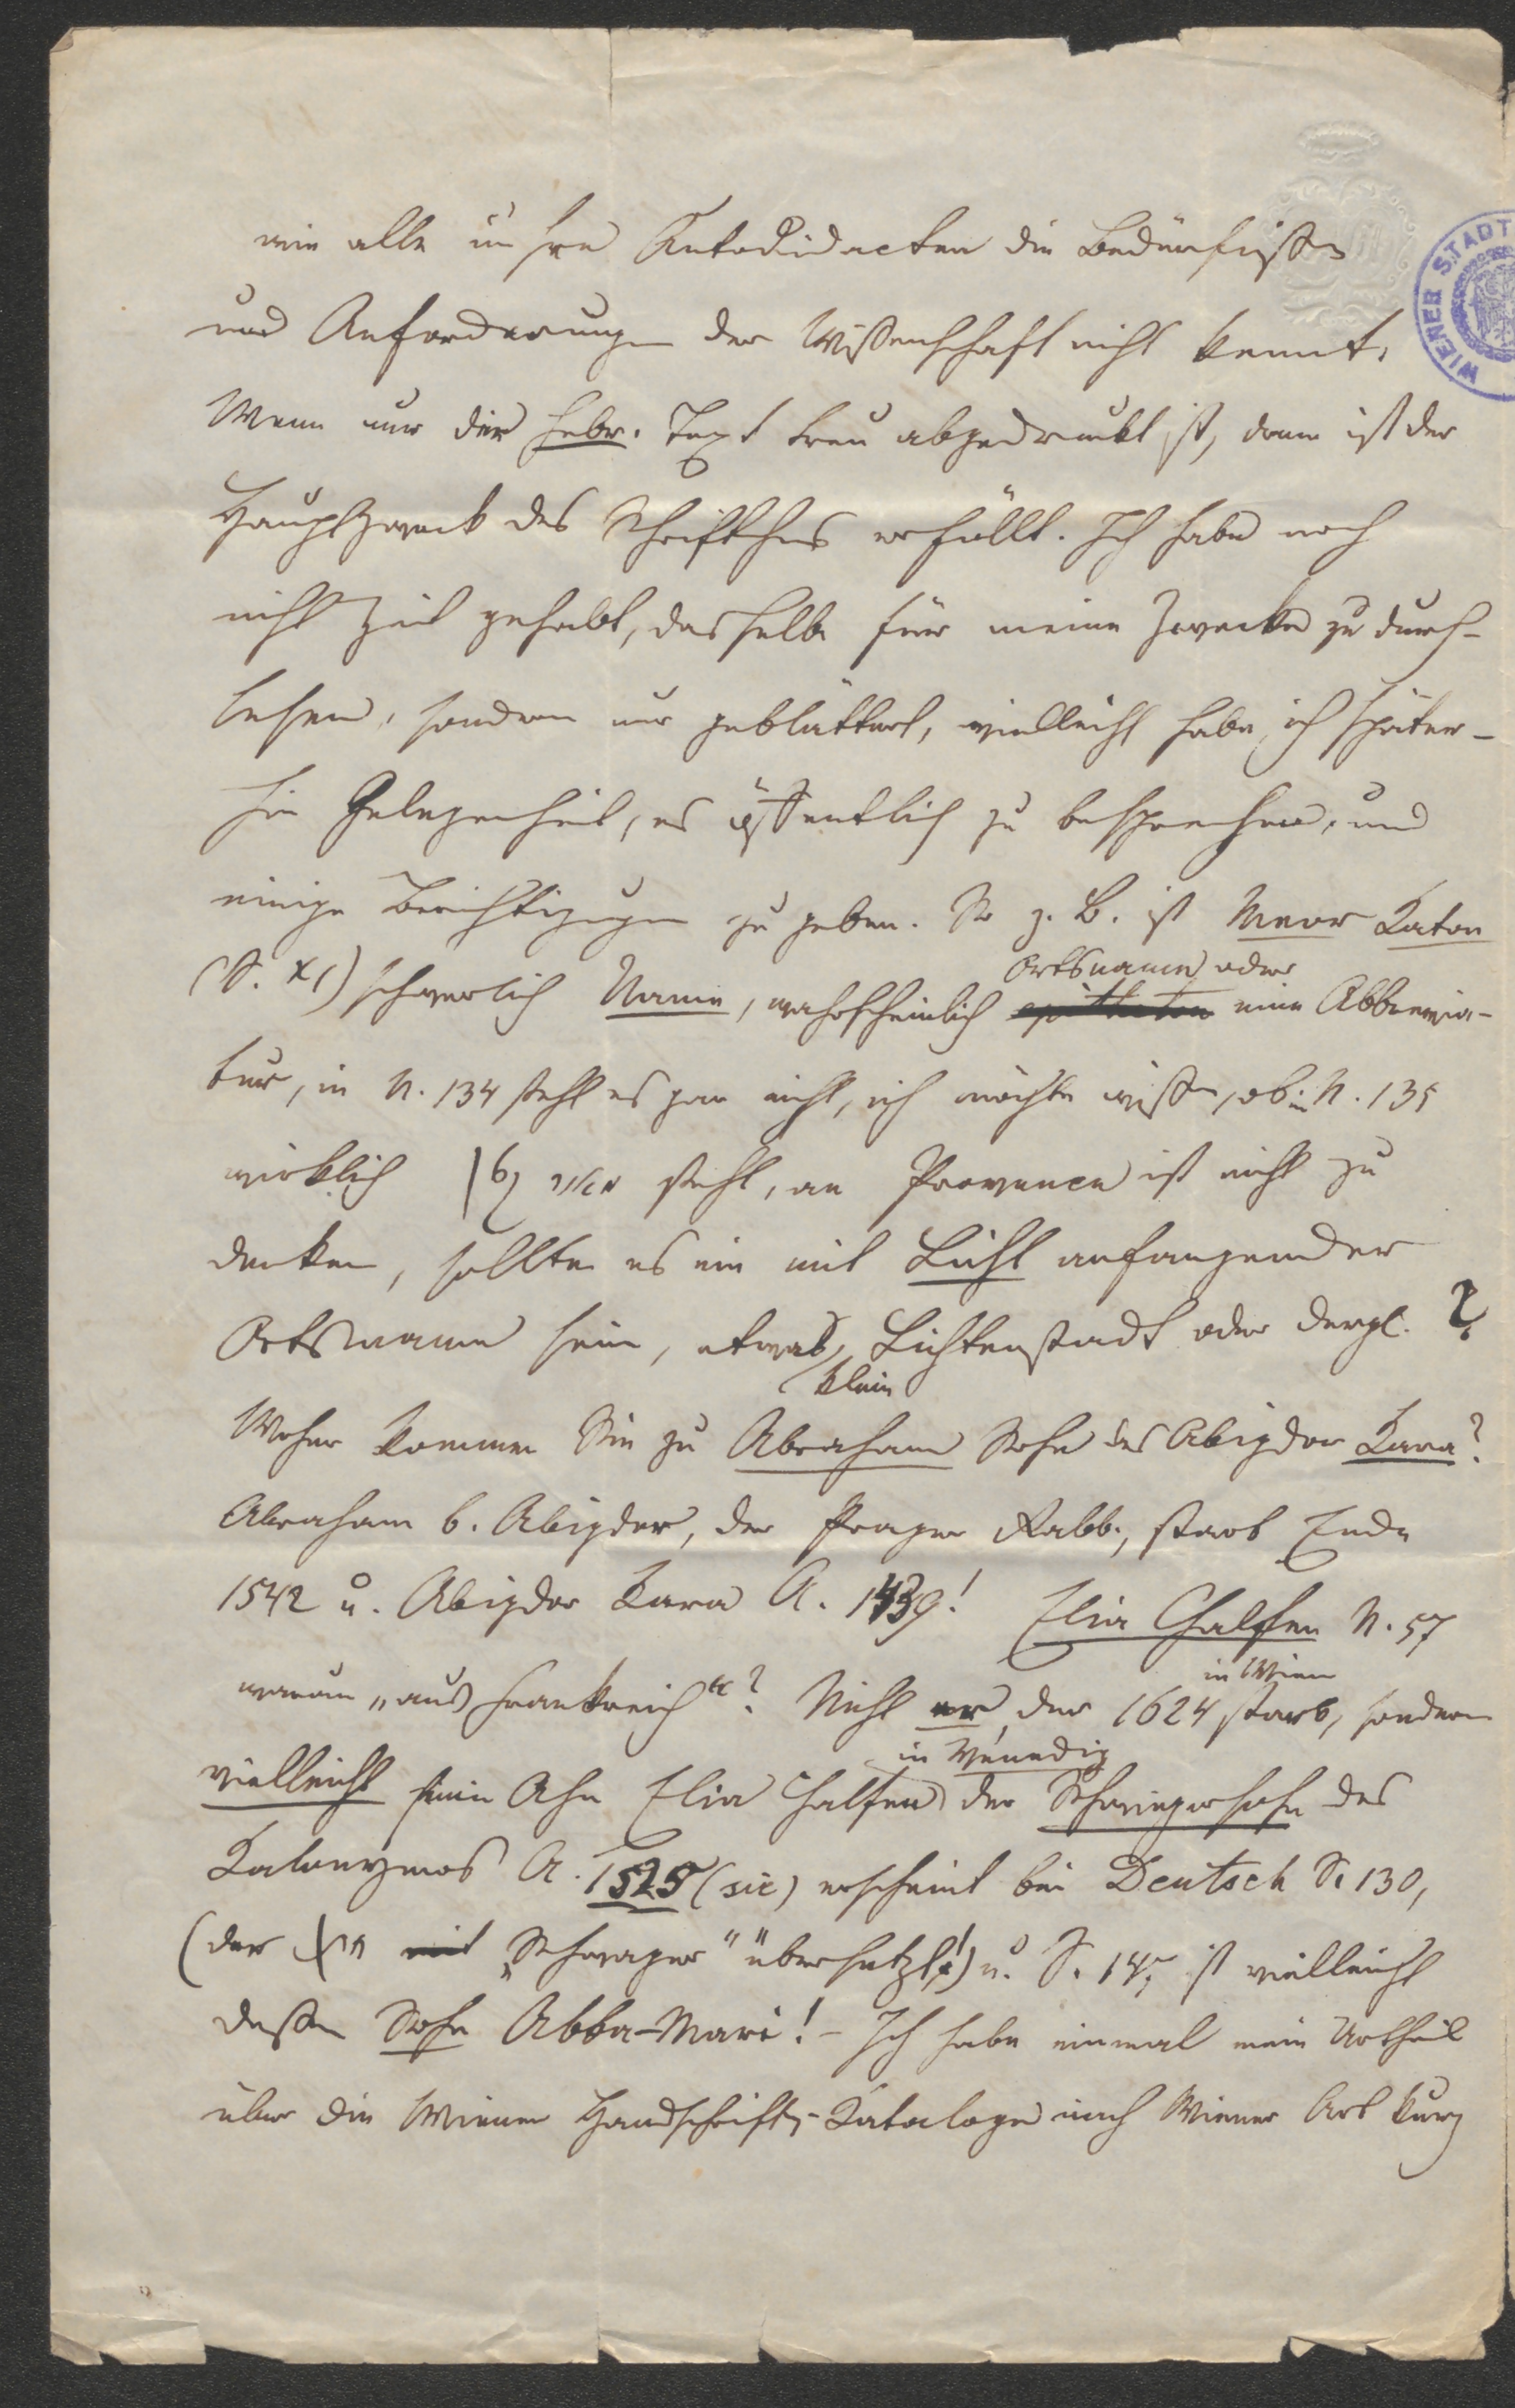 wie alle unsre Autodidacten die Bedürfnisse
und Anforderungen der Wissenschaft nicht kennt.
Wenn nur der hebr. Text treu abgedruckt ist, dann ist der
Hauptzweck des Schriftchens erfüllt. Ich habe noch
nicht Zeit gehabt, dasselbe für meine Zwecke zu durch-
lesen, sondern nur geblättert, vielleicht habe ich später-
hin Gelegenheit, es öffentlich zu besprechen, und
einige Berichtigungen zu geben. So z. B. ist Meor Katon
Ortsname oder
(S. XI) schwerlich Name, wahrscheinlich epitheton eine Abbrevia-
tur, in N. 134 steht es gar nicht, ich möchte wissen, ob in N. 135
wirklich מאור קטן steht, an Provence ist nicht zu
denken, sollte es ein mit Licht anfangender
Ortsname sein, etwas Lichtenstadt oder dergl. ?
klein
Woher kommen Sie zu Abraham Sohn des Abigdor Kara?
Abraham b. Abigdor, der Prager Rabb., starb Ende
1542 u. Abigdor Kara A. 1439! Elia Chalfan N. 57
in Wien
warum „aus Frankreich“? Nicht er, der 1624 starb, sondern
in Venedig
vielleicht sein Ahn Elia Chalfan der Schwiegersohn des
Kalonymos A. 1525 (sic) erscheint bei Deutsch S. 130,
(der חתן mit „Schwager“ übersetzt!) u. S. 145 ist vielleicht
dessen Sohn Abba-Mari! – Ich habe einmal mein Urtheil
über die Wiener Handschrifts-Kataloge nach Wiener Art kurz
WIENER STADT